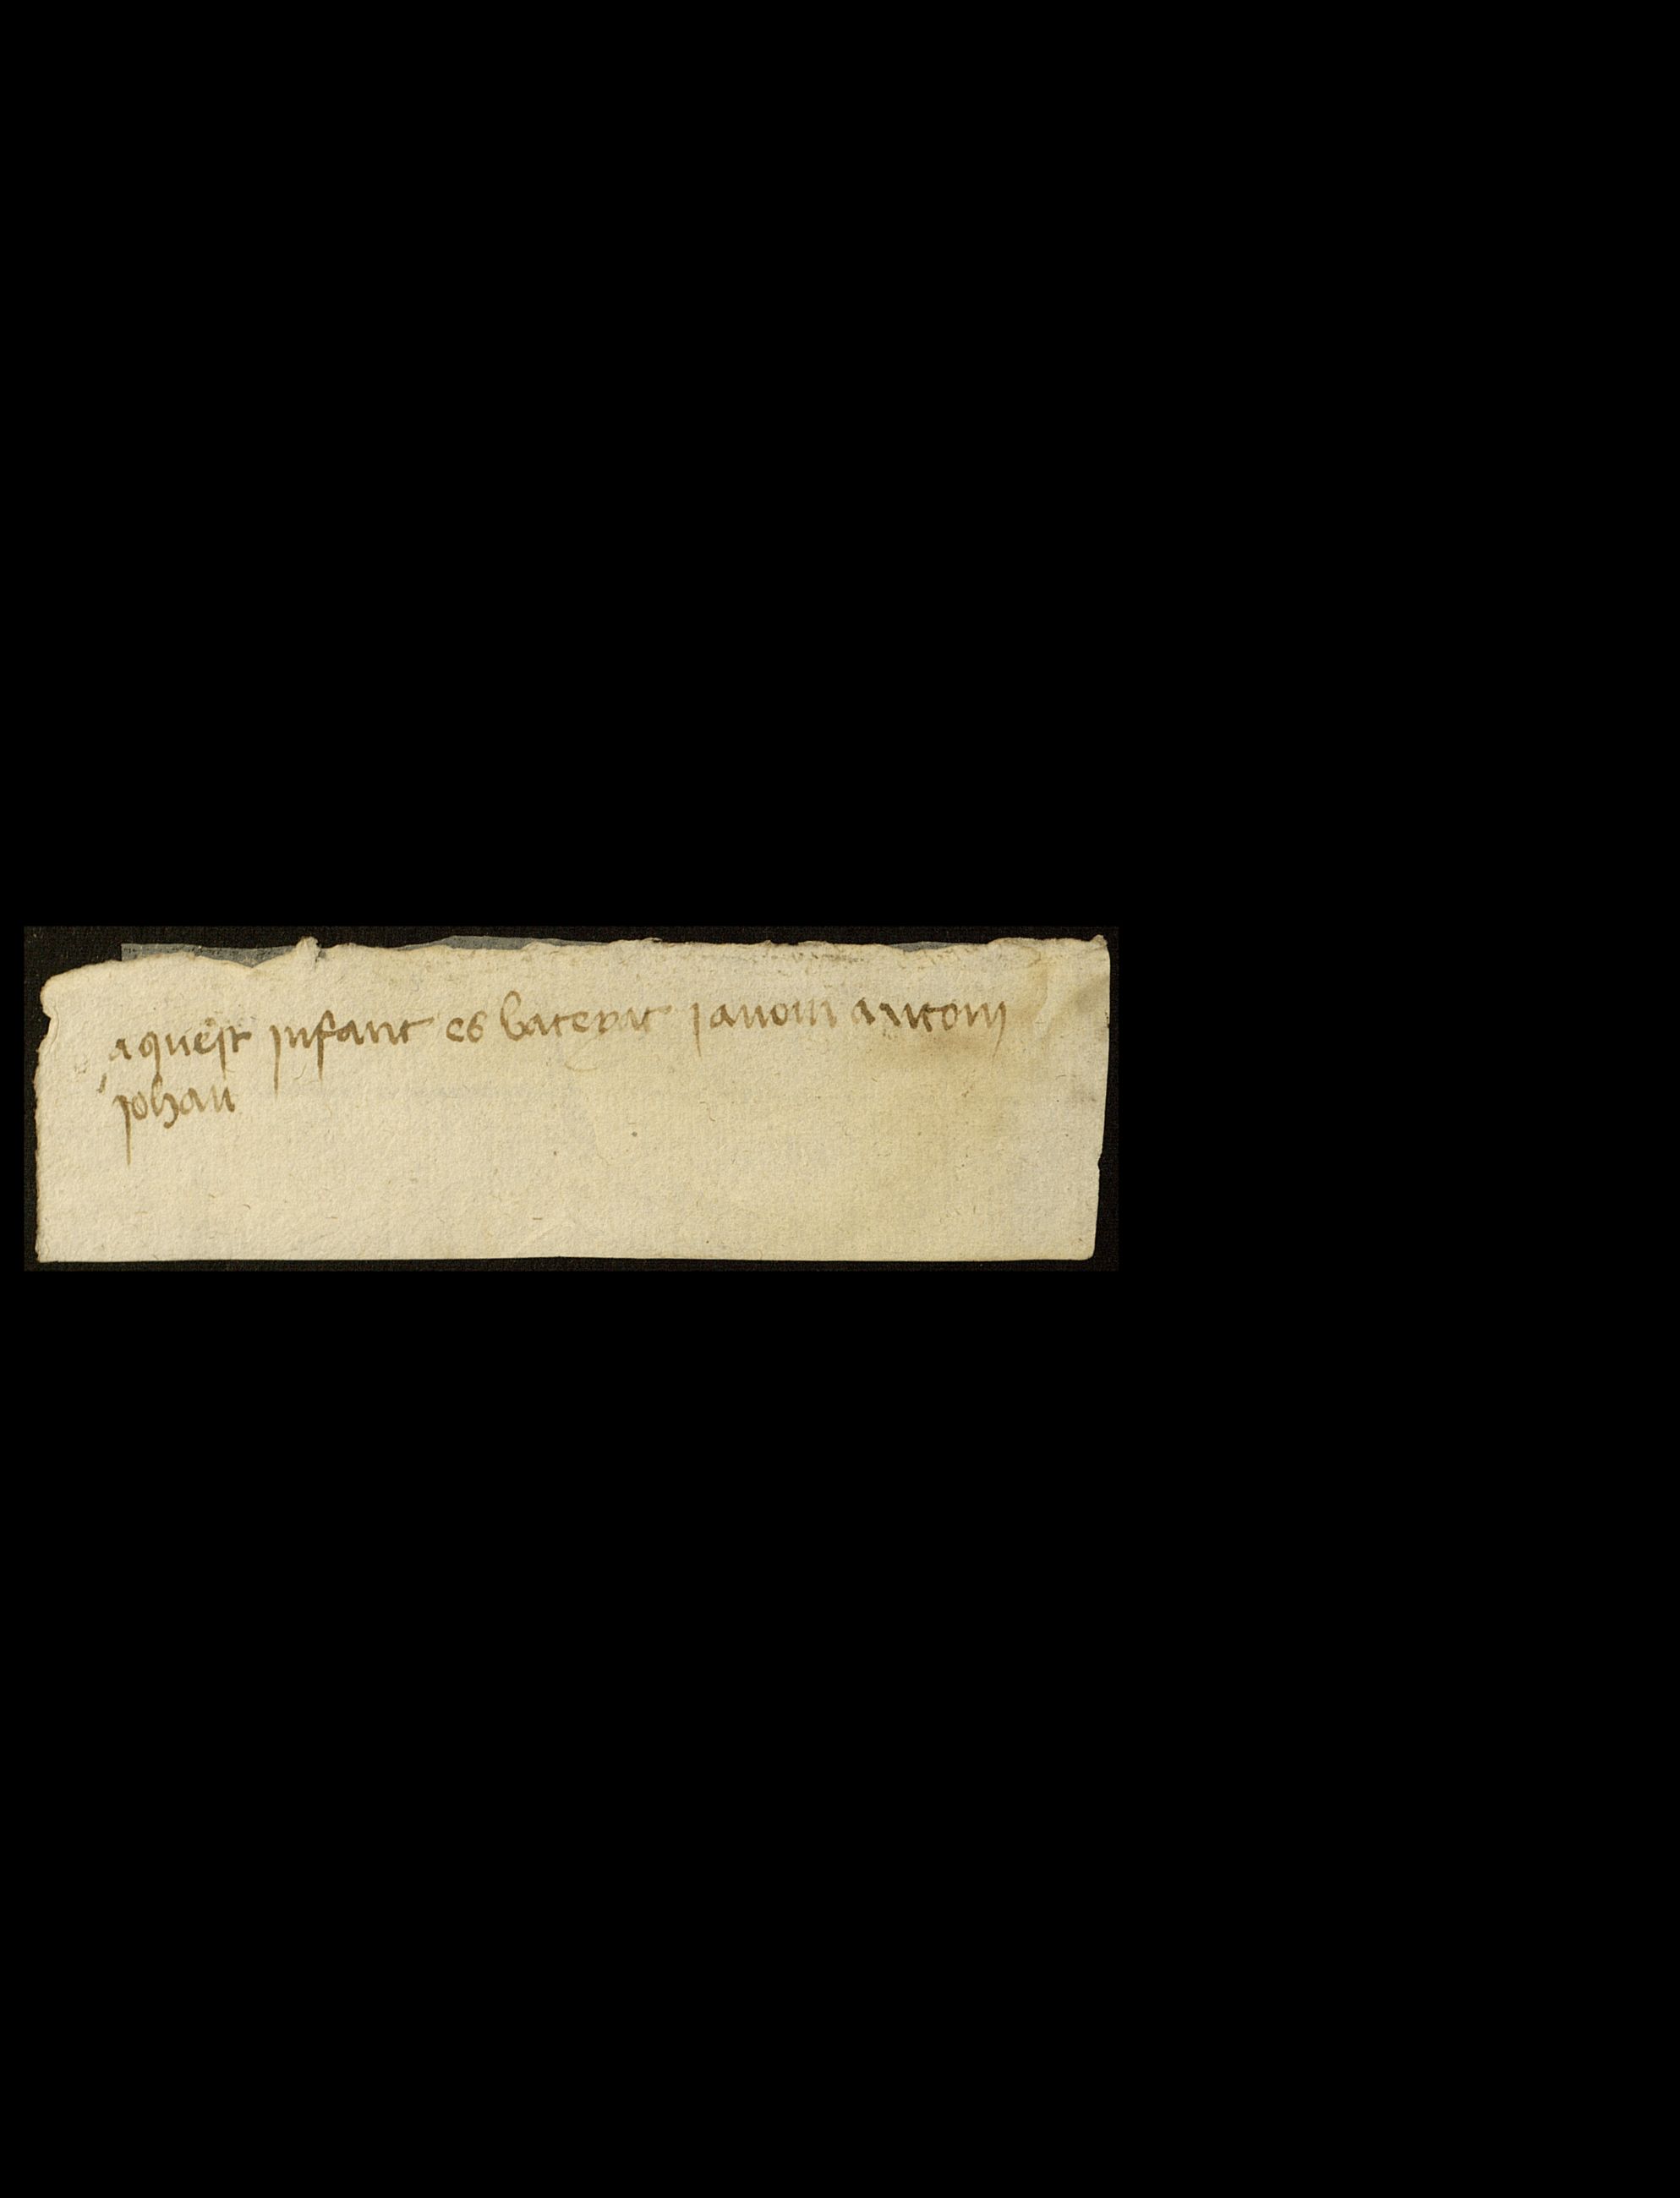 aquest infant es bateyat ja nom antoni
johan